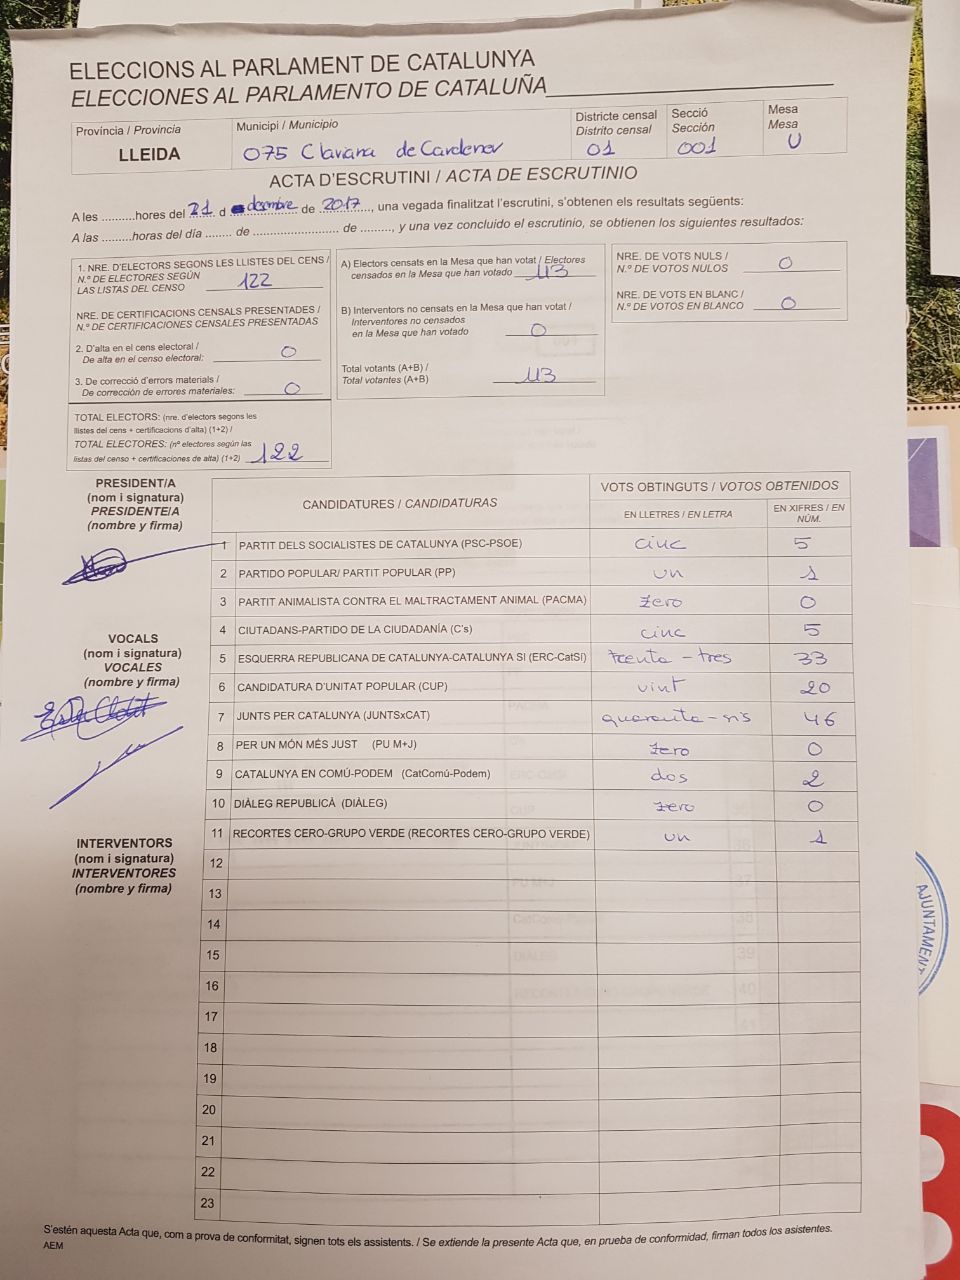 ELECCIONS AL PARLAMENT DE CATALUNYA
ELECCIONES AL PARLAMENTO DE CATALUÑA
Província / Provincia
LLEIDA
Municipi / Municipio
075 Clariana de Cardener
Districte censal
Distrito censal
01
Secció
Sección
001
Mesa
Mesa
U
ACTA D'ESCRUTINI / ACTA DE ESCRUTINIO
A les ..........hores del 21 d desembre de 2017, una vegada finalitzat l'escrutini, s'obtenen els resultats següents:
A las .........horas del día ........ de .......................... de ........., y una vez concluido el escrutinio, se obtienen los siguientes resultados:
1. NRE. D'ELECTORS SEGONS LES LLISTES DEL CENS /
N.º DE ELECTORES SEGÚN
LAS LISTAS DEL CENSO
122
NRE. DE CERTIFICACIONS CENSALS PRESENTADES /
N.º DE CERTIFICACIONES CENSALES PRESENTADAS
2. D'alta en el cens electoral /
De alta en el censo electoral: 0
3. De correcció d'errors materials /
De corrección de errores materiales: 0
TOTAL ELECTORS: (nre. d'electors segons les
llistes del cens + certificacions d'alta) (1+2) /
TOTAL ELECTORES: (nº electores según las
listas del censo + certificaciones de alta) (1+2) 122
A) Electors censats en la Mesa que han votat / Electores
censados en la Mesa que han votado 113
B) Interventors no censats en la Mesa que han votat /
Interventores no censados
en la Mesa que han votado 0
Total votants (A+B) /
Total votantes (A+B) 113
NRE. DE VOTS NULS /
N.º DE VOTOS NULOS 0
NRE. DE VOTS EN BLANC /
N.º DE VOTOS EN BLANCO 0
PRESIDENT/A
(nom i signatura)
PRESIDENTE/A
(nombre y firma)
VOCALS
(nom i signatura)
VOCALES
(nombre y firma)
INTERVENTORS
(nom i signatura)
INTERVENTORES
(nombre y firma)
CANDIDATURES / CANDIDATURAS
VOTS OBTINGUTS / VOTOS OBTENIDOS
EN LLETRES / EN LETRA
EN XIFRES / EN
NÚM.
1 PARTIT DELS SOCIALISTES DE CATALUNYA (PSC-PSOE) cinc 5
2 PARTIDO POPULAR/ PARTIT POPULAR (PP) un 1
3 PARTIT ANIMALISTA CONTRA EL MALTRACTAMENT ANIMAL (PACMA) zero 0
4 CIUTADANS-PARTIDO DE LA CIUDADANÍA (C's) cinc 5
5 ESQUERRA REPUBLICANA DE CATALUNYA-CATALUNYA SI (ERC-CatSi) trenta-tres 33
6 CANDIDATURA D'UNITAT POPULAR (CUP) vint 20
7 JUNTS PER CATALUNYA (JUNTSxCAT) quaranta-sis 46
8 PER UN MÓN MÉS JUST (PU M+J) zero 0
9 CATALUNYA EN COMÚ-PODEM (CatComú-Podem) dos 2
10 DIÀLEG REPUBLICÀ (DIÀLEG) zero 0
11 RECORTES CERO-GRUPO VERDE (RECORTES CERO-GRUPO VERDE) un 1
12
13
14
15
16
17
18
19
20
21
22
23
S'estén aquesta Acta que, com a prova de conformitat, signen tots els assistents. / Se extiende la presente Acta que, en prueba de conformidad, firman todos los asistentes.
AEM
AJUNTAMENT